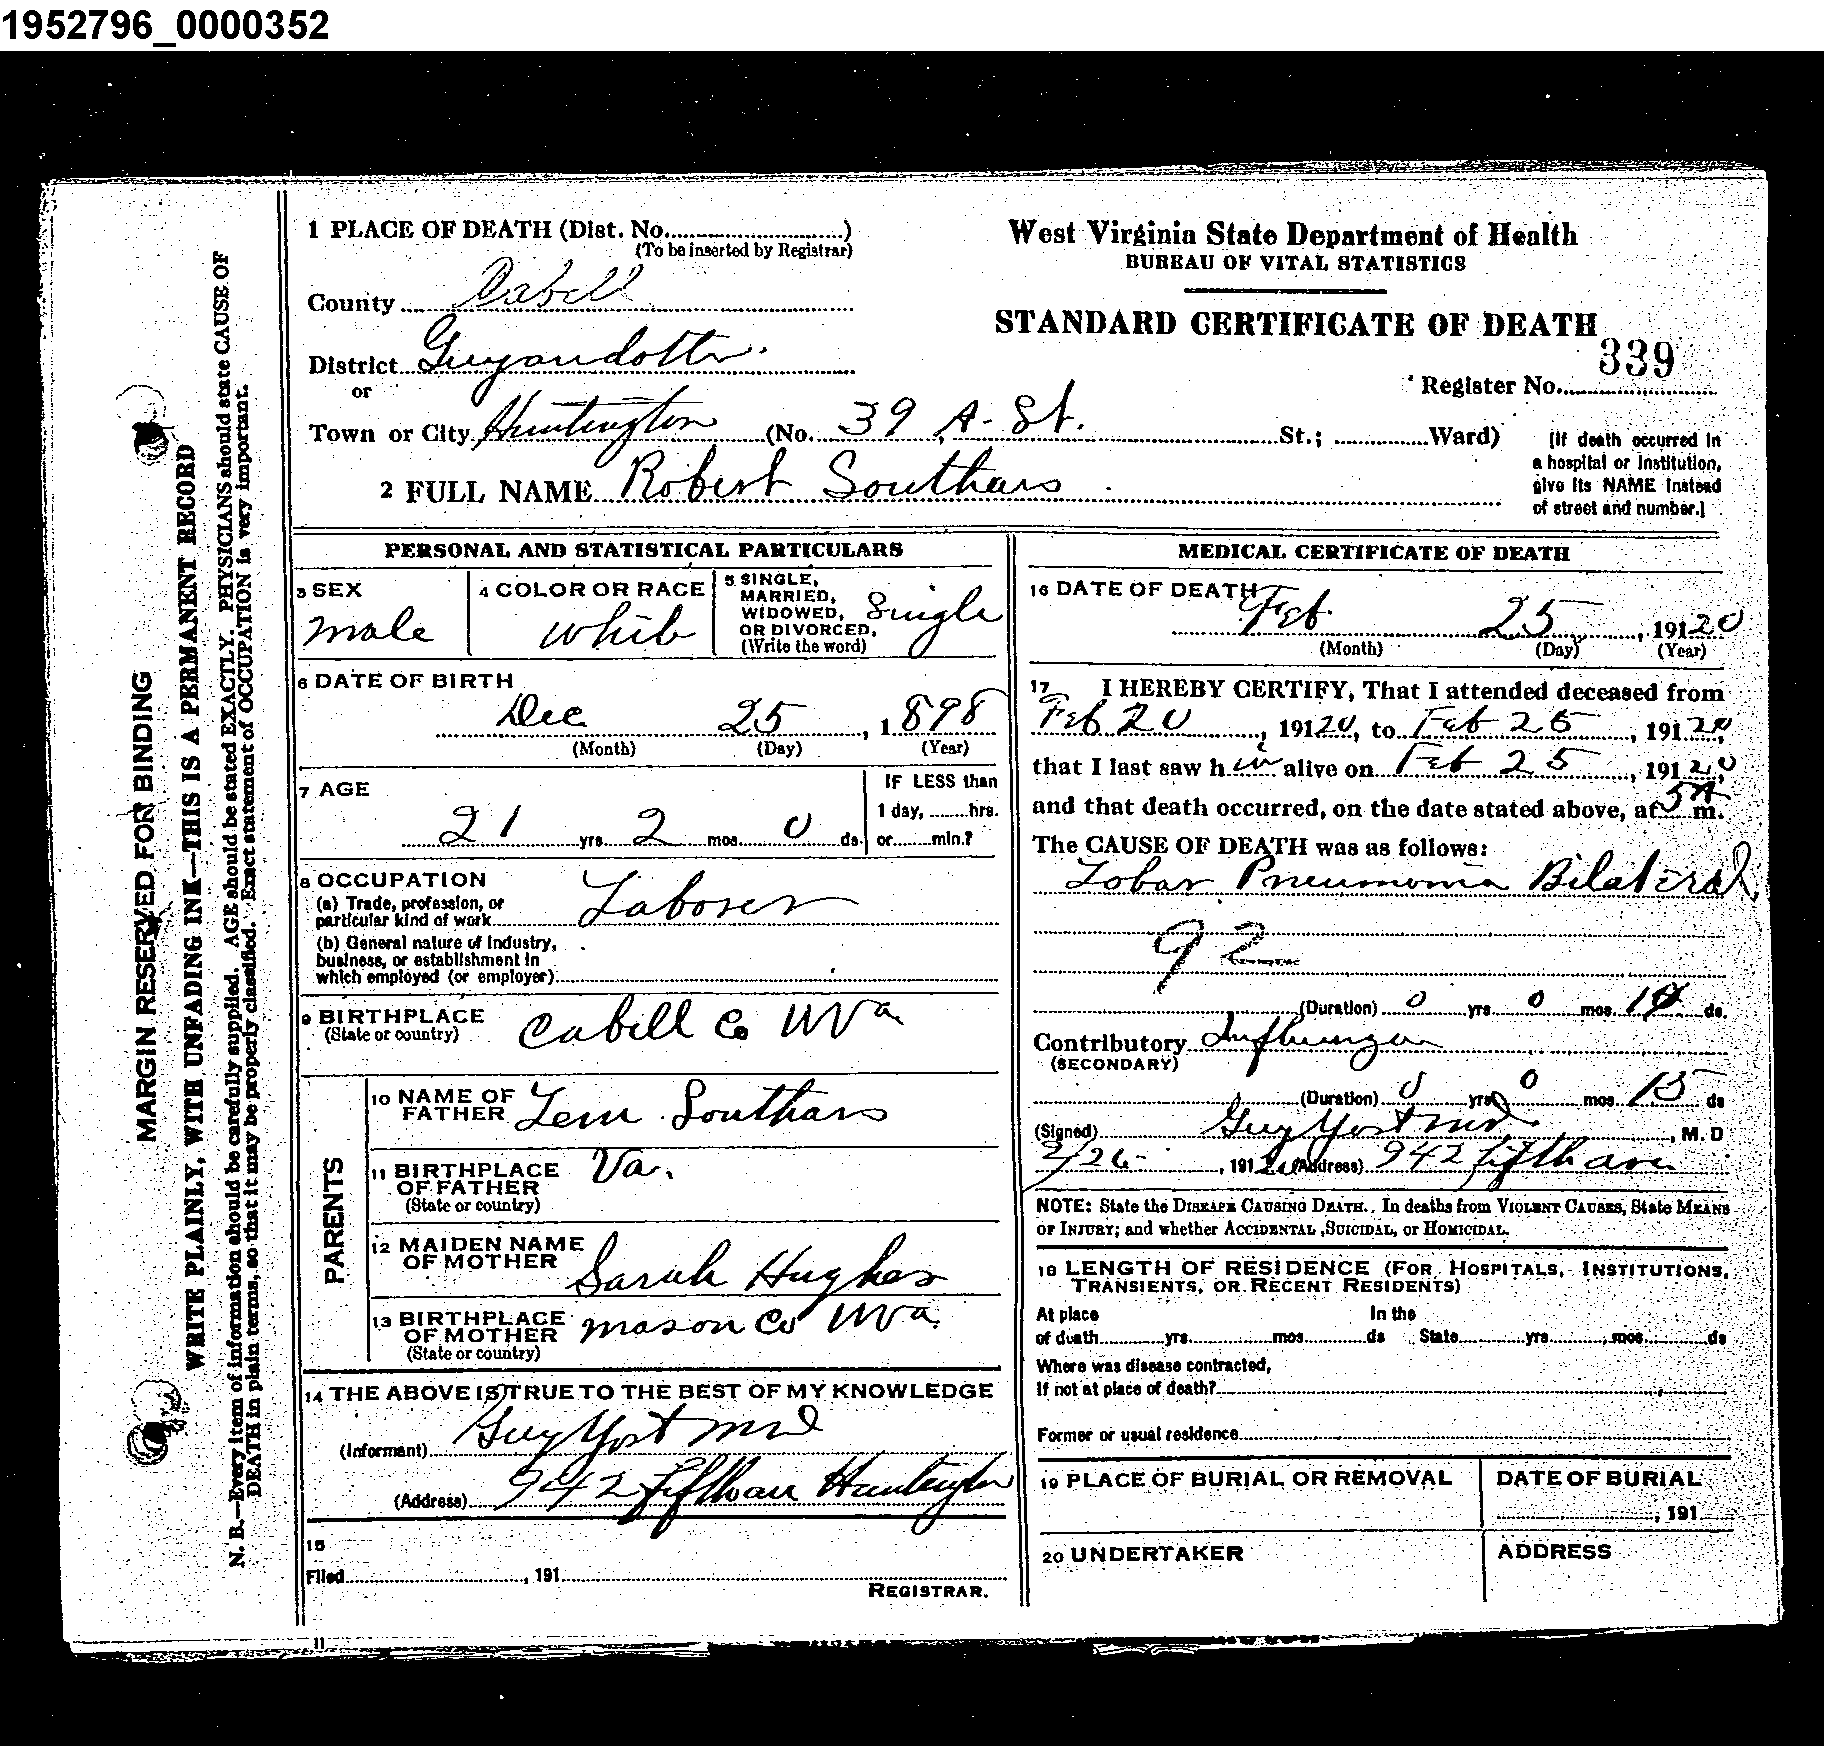 1952796_0000352
1 PLACE OF DEATH (Dist. No..............................)
(To be inserted by Registrar)
County Cabell
District Guyandotte
or
Town or City Huntington (No. 39 A. St. St.; ............Ward)
2 FULL NAME Robert Southars
West Virginia State Department of Health
BUREAU OF VITAL STATISTICS
STANDARD CERTIFICATE OF DEATH
339
Register No.
[If death occurred in
a hospital or institution,
give its NAME instead
of street and number.]
PERSONAL AND STATISTICAL PARTICULARS
3 SEX
male
4 COLOR OR RACE
white
5 SINGLE,
MARRIED,
WIDOWED,
OR DIVORCED,
(Write the word)
Single
6 DATE OF BIRTH
Dec 25, 1898
(Month) (Day) (Year)
7 AGE
21 yrs. 2 mos. 0 ds.
IF LESS than
1 day, ........hrs.
or........min.?
8 OCCUPATION
(a) Trade, profession, or
particular kind of work Laborer
(b) General nature of industry,
business, or establishment in
which employed (or employer)
9 BIRTHPLACE
(State or country) Cabell Co WVa
PARENTS
10 NAME OF
FATHER Lem Southars
11 BIRTHPLACE
OF FATHER
(State or country) Va.
12 MAIDEN NAME
OF MOTHER Sarah Hughes
13 BIRTHPLACE
OF MOTHER
(State or country) Mason Co WVa.
14 THE ABOVE IS TRUE TO THE BEST OF MY KNOWLEDGE
(Informant) Guy Yost MD
(Address) 942 Fifth ave Huntington
15
Filed , 191
REGISTRAR.
11
MEDICAL CERTIFICATE OF DEATH
16 DATE OF DEATH
Feb 25, 19120
(Month) (Day) (Year)
17 I HEREBY CERTIFY, That I attended deceased from
Feb 20, 19120, to Feb 25, 19120,
that I last saw him alive on Feb 25, 19120,
and that death occurred, on the date stated above, at 5A m.
The CAUSE OF DEATH was as follows:
Lobar Pneumonia Bilateral
92
(Duration) 0 yrs 0 mos ds.
Contributory Influenza
(SECONDARY)
(Duration) 0 yrs 0 mos 15 ds
(Signed) Guy Yost MD, M. D
2/26, 19120 (Address) 942 Fifth ave
NOTE: State the DISEASE CAUSING DEATH. In deaths from VIOLENT CAUSES, State MEANS
OF INJURY; and whether ACCIDENTAL, SUICIDAL, or HOMICIDAL.
18 LENGTH OF RESIDENCE (FOR HOSPITALS, INSTITUTIONS,
TRANSIENTS, OR RECENT RESIDENTS)
At place In the
of death yrs mos ds State yrs mos ds
Where was disease contracted,
If not at place of death?
Former or usual residence
19 PLACE OF BURIAL OR REMOVAL
DATE OF BURIAL
, 191
20 UNDERTAKER
ADDRESS
MARGIN RESERVED FOR BINDING
WRITE PLAINLY, WITH UNFADING INK—THIS IS A PERMANENT RECORD
N. B.—Every item of information should be carefully supplied. AGE should be stated EXACTLY. PHYSICIANS should state CAUSE OF
DEATH in plain terms, so that it may be properly classified. Exact statement of OCCUPATION is very important.